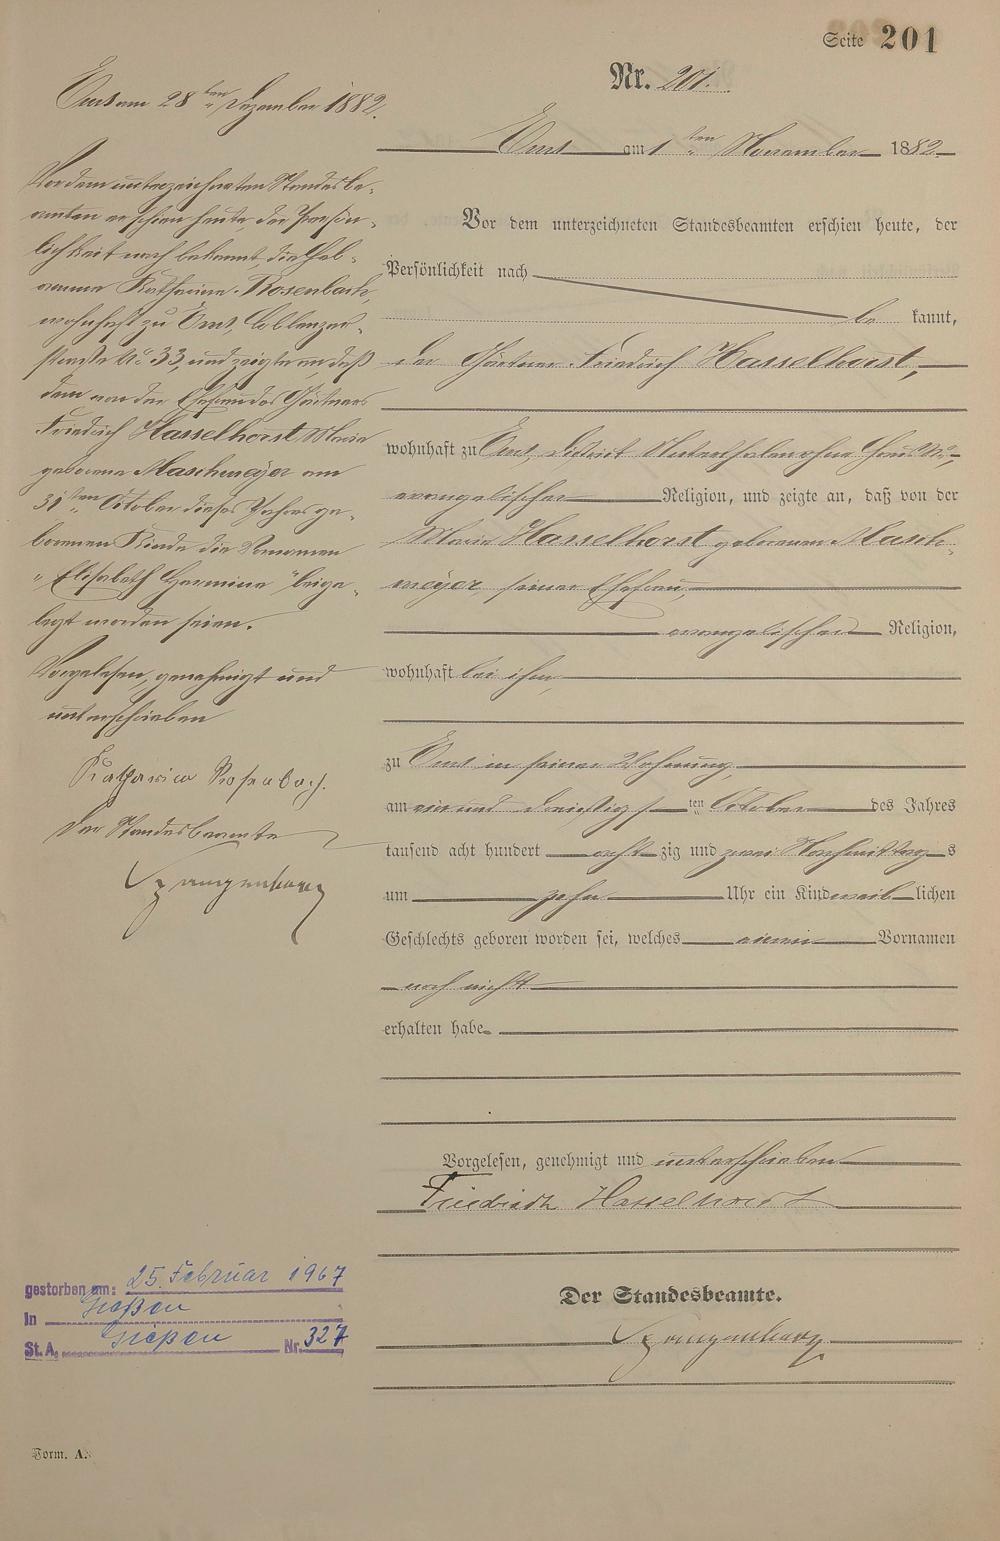 Seite 201
Nr. 201.
Ems am 1ten November 1882
Vor dem unterzeichneten Standesbeamten erschien heute, der
Persönlichkeit nach
be kannt,
der Gärtner Friedrich Hasselhorst,
wohnhaft zu Ems, District ohne Haus No,
evangelischer Religion, und zeigte an, daß von der
Marie Hasselhorst geborenen Masch-
meyer, seiner Ehefrau,
evangelischer Religion,
wohnhaft bei ihm,
zu Ems in seiner Wohnung,
am ein und dreißigsten October des Jahres
tausend acht hundert acht zig und zwei Nachmittags
um zehn Uhr ein Kind weiblichen
Geschlechts geboren worden sei, welches einen Vornamen
noch nicht
erhalten habe.
Vorgelesen, genehmigt und unterschrieben
Friedrich Hasselhorst
Der Standesbeamte.
Ems am 28ten Dezember 1882.
Vor dem unterzeichneten Standesbe-
amten erschien heute, der Persön-
lichkeit nach bekannt, die Heb-
amme Katharina Rosenbach,
wohnhaft zu Ems, Coblenzer-
straße No 33, und zeigte an, daß
dem von der Ehefrau des Gärtners
Friedrich Hasselhorst, Marie
geborene Maschmeyer am
31ten October dieses Jahres ge-
borenen Kinde die Vornamen
"Elisabeth Hermine" beige-
legt worden seien.
Vorgelesen, genehmigt und
unterschrieben
Katharina Rosenbach.
Der Standesbeamte
gestorben am: 25. Februar 1967
In Gießen
St. A. Gießen Nr. 327
Form. A.